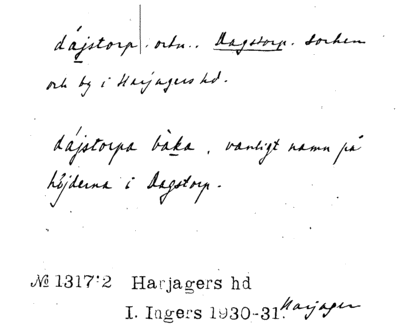 dájstorp. ortn.. Dagstorp. socken
och by i Harjagers hd.
dájstorpa bàka, vanligt namn på
höjderna i Dagstorp.
№ 1317:2 Harjagers hd
I. Ingers 1930-31. Harjager